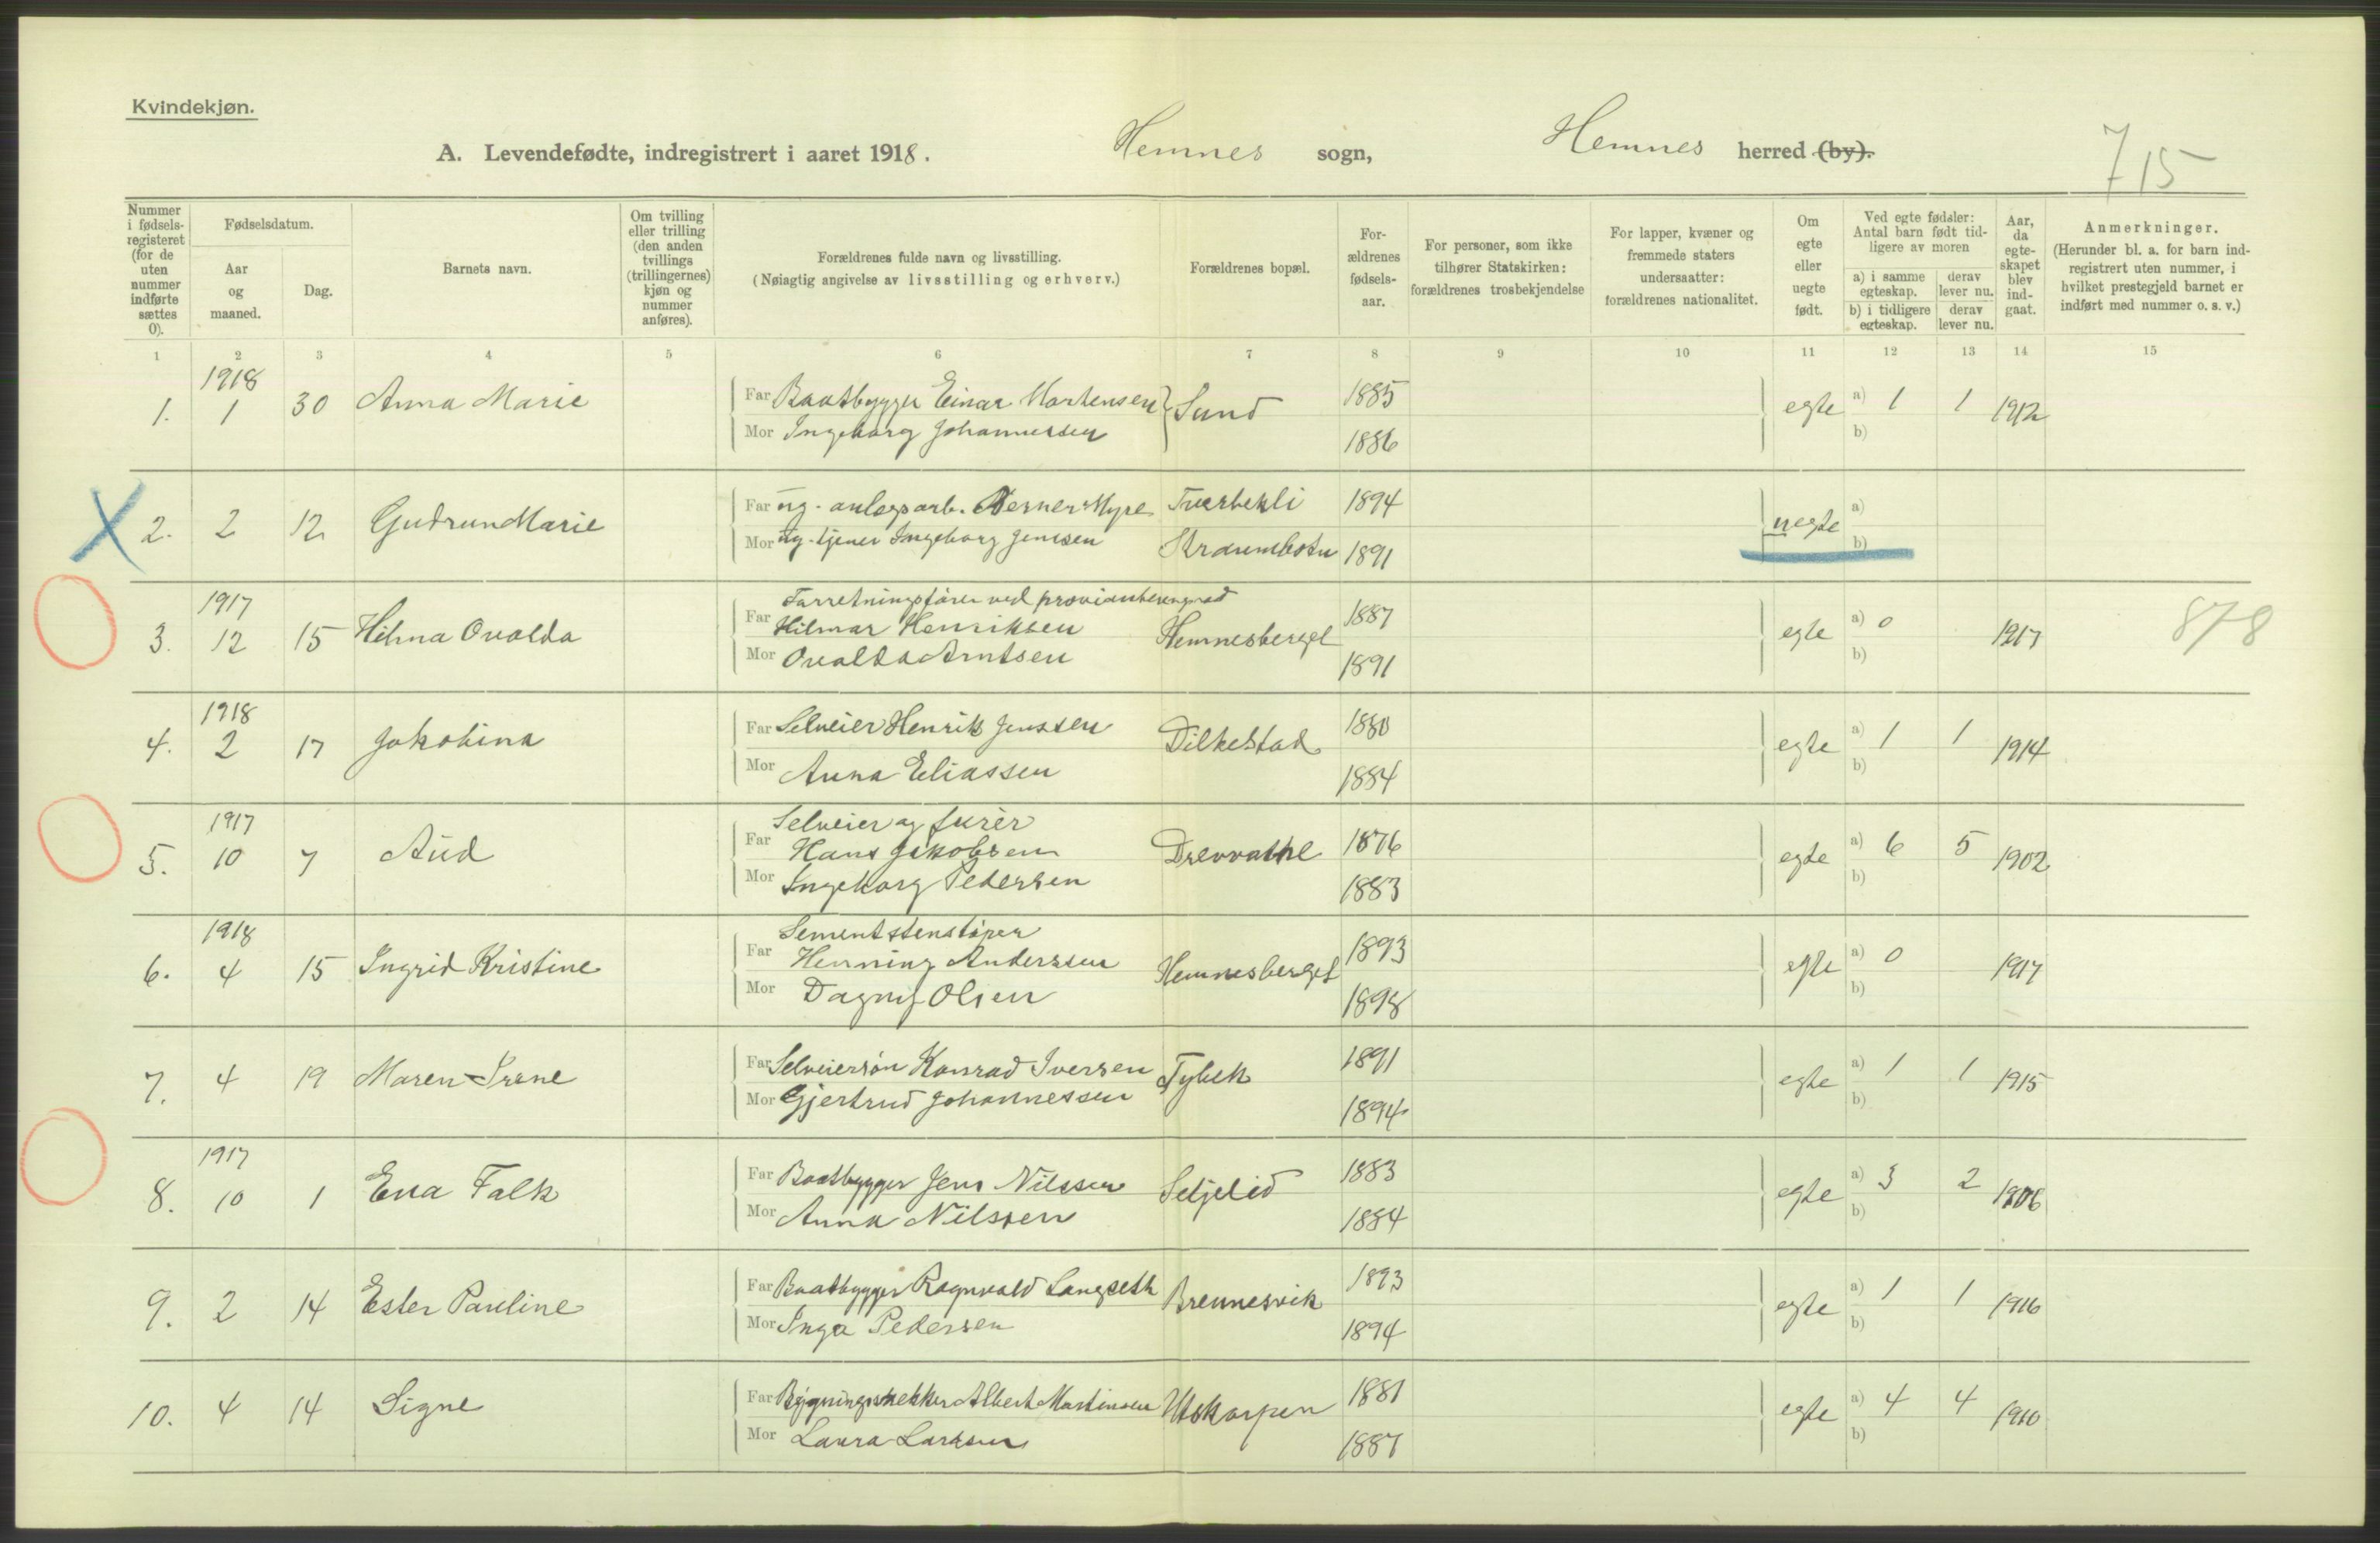 Kvindekjøn.
A. Levendefødte, indregistrert i aaret 1918. Hemnes sogn, Hemnes herred (by).
715
Nummer i fødsels-registeret (for de uten nummer indførte sættes 0).
Fødselsdatum.
Aar og maaned.
Dag.
Barnets navn.
Om tvilling eller trilling (den anden tvillings (trillingernes) kjøn og nummer anføres).
Forældrenes fulde navn og livsstilling.
(Nøiagtig angivelse av livsstilling og erhverv.)
Forældrenes bopæl.
For-ældrenes fødsels-aar.
For personer, som ikke tilhører Statskirken: forældrenes trosbekjendelse
For lapper, kvæner og fremmede staters undersaatter: forældrenes nationalitet.
Om egte eller uegte født.
Ved egte fødsler: Antal barn født tid-ligere av moren
a) i samme egteskap.
derav lever nu.
b) i tidligere egteskap.
derav lever nu.
Aar, da egte-skapet blev ind-gaat.
Anmerkninger.
(Herunder bl. a. for barn ind-registrert uten nummer, i hvilket prestegjeld barnet er indført med nummer o. s. v.)
1 2 3 4 5 6 7 8 9 10 11 12 13 14 15
1918
1. 1 30 Anna Marie Far Baatbygger Einar Mortensen Sund 1885 egte a) 1 1 1912
Mor Ingeborg Johannessen 1886 b)
2. 2 12 Gudrun Marie Far ug. anlegsarb. Verner Myre Tverbekli 1894 uegte a)
Mor ug. tjener Ingeborg Jenssen Straumbotn 1891 b)
1917
Forretningsfører ved
3. 12 15 Hilma Ovalda Far Hilmar Henriksen Hemnesberget 1887 egte a) 0 1917 878
Mor Ovalda Arntsen 1891 b)
1918
4. 2 17 Jakobina Far Selveier Henrik Jenssen Dilkestad 1880 egte a) 1 1 1914
Mor Anna Eliassen 1884 b)
1917
Selveier og furer
5. 10 7 Aud Far Hans Jakobsen Drevvatne 1876 egte a) 6 5 1902
Mor Ingeborg Pedersen 1883 b)
1918
Sementstenstøper
6. 4 15 Ingrid Kristine Far Henning Anderssen Hemnesberget 1893 egte a) 0 1917
Mor Dagny Olsen 1898 b)
7. 4 19 Maren Irene Far Selveiersøn Konrad Iversen Tybek 1891 egte a) 1 1 1915
Mor Gjertrud Johannessen 1894 b)
1917
8. 10 1 Eva Falk Far Baatbygger Jens Nilssen Seljelid 1883 egte a) 3 2 1906
Mor Anna Nilssen 1884 b)
9. 2 14 Ester Pauline Far Baatbygger Ragnvald Langseth Brennesvik 1893 egte a) 1 1 1916
Mor Inga Pedersen 1894 b)
10. 4 14 Signe Far Bygningsnekker Albert Martinsen Utskarpen 1881 egte a) 4 4 1910
Mor Laura Larssen 1887 b)